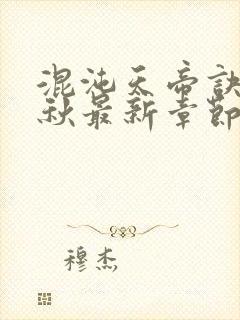 混沌天帝訣
秋最新章節
穆杰